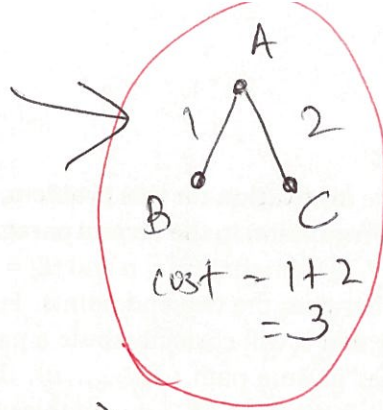 A
1 2
B C
cost = 1+2
= 3